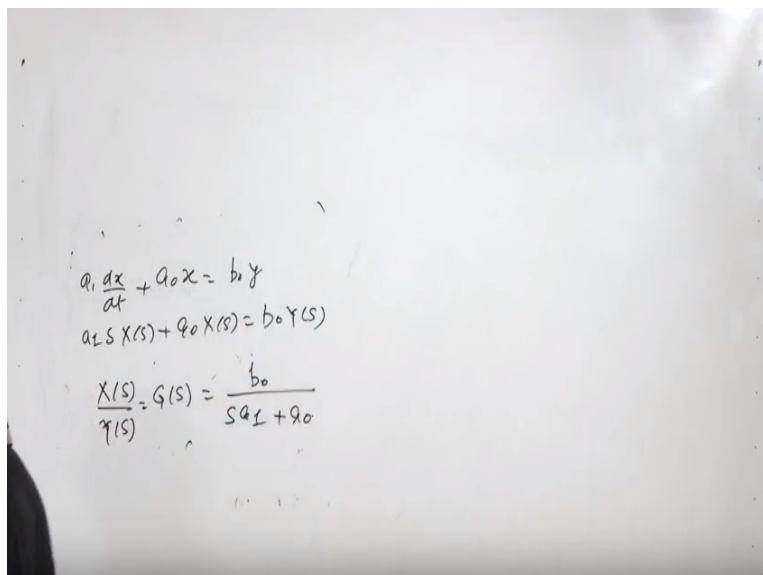 a₁ dx/dt + a₀x = b₀y
a₁ S X(S) + a₀ X(S) = b₀ Y(S)
X(S)/Y(S) = G(S) = b₀/(Sa₁ + a₀)